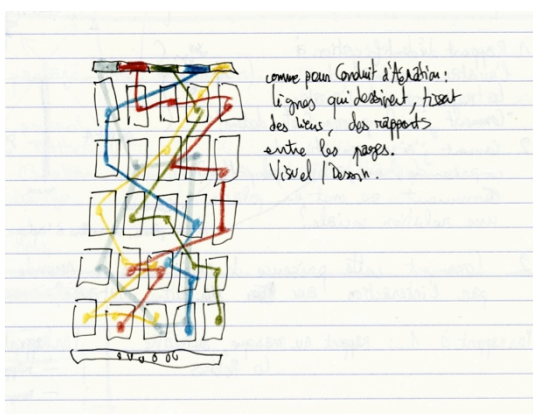 comme pour Conduit d'Aération :
lignes qui dessinent, tissent
des liens, des rapports
entre les pages.
Visuel / Dessin.